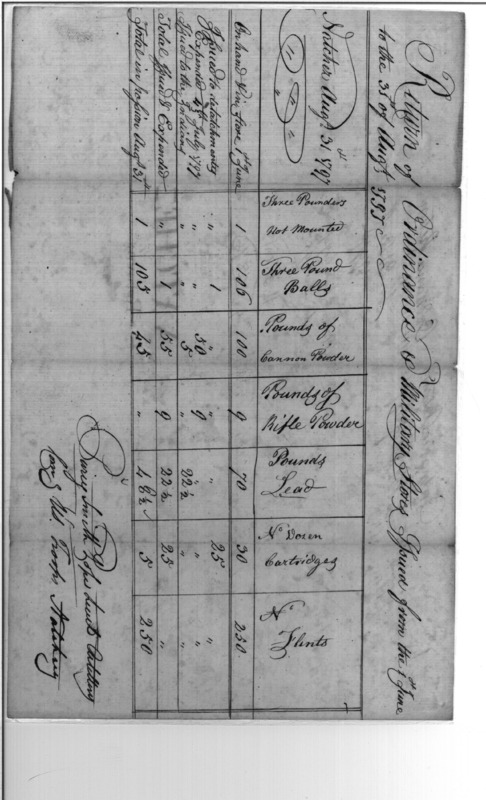 Return of Ordinance & Military Stores Issued from the 1st June
to the 31st of Augt 1797
Natchez Augt 31st 1797
Three Pounders Not Mounted
Three Pound Balls
Pounds of Cannon Powder
Pounds of Rifle Powder
Pounds Lead
No Dozen Cartridges
No Flints
On hand & in Store 1st June 1 106 100 9 70 30 250
Issued to detachments " 1 50 9 " 25 "
Expended 4th July 1797 " " 5 " " " "
Issued to the Indians " " " 22½ " "
Total Issued & Expended " 1 55 9 22½ 25 "
Total in Augt 31st 1 105 45 " 4 5 250
Piercy Smith Pope Lieut
Com'g U.S. Troops Natchez